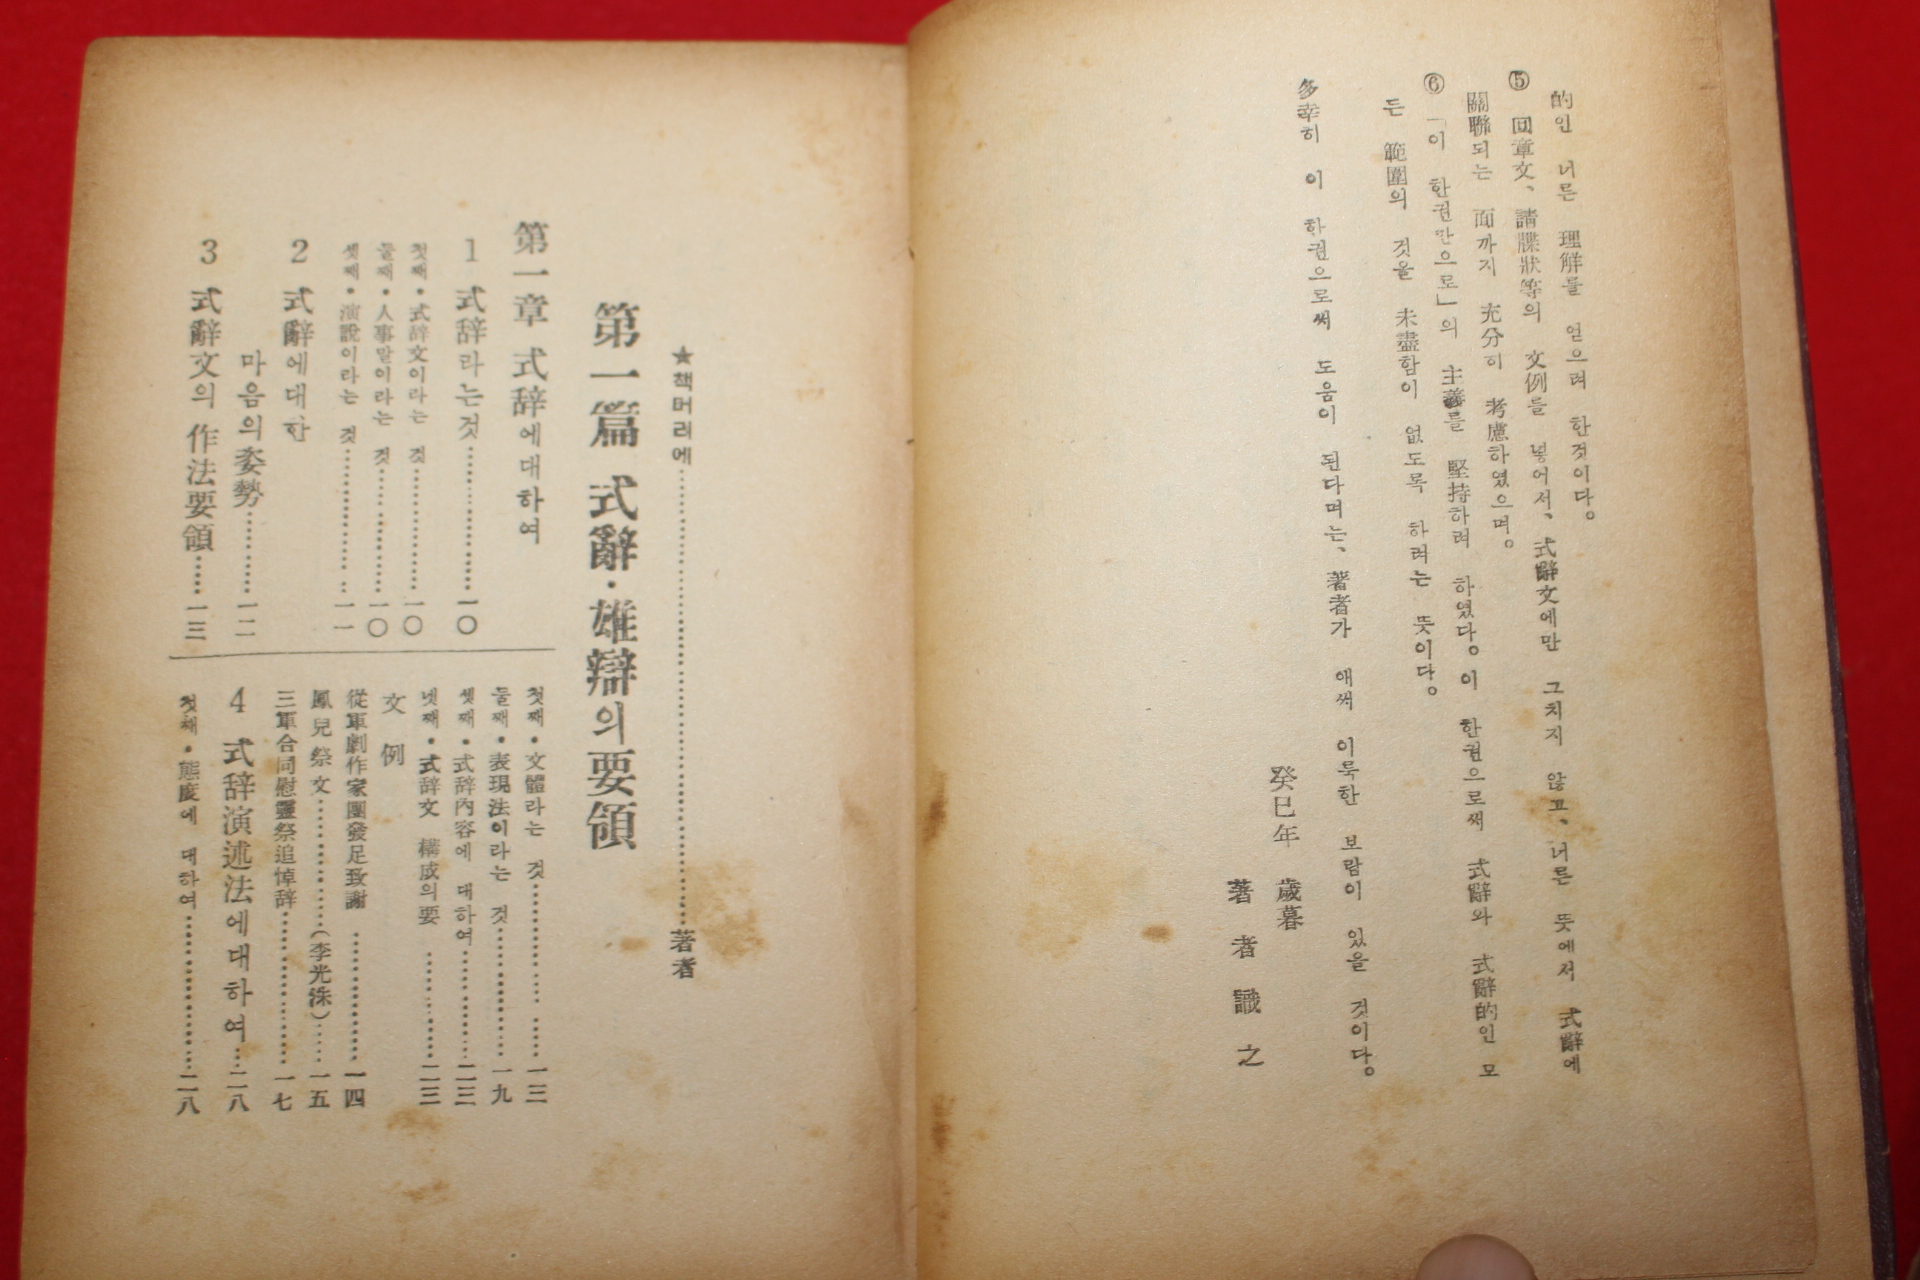 的인 너른 理解를 얻으려 한것이다。
⑤ 回章文、請牒狀等의 文例를 넣어서、式辭文에만 그치지 않고、너른 뜻에서 式辭에
關聯되는 面까지 充分히 考慮하였으며。
⑥ 「이 한권만으로」의 主義를 堅持하려 하였다。이 한권으로써 式辭와 式辭的인 모
든 範圍의 것을 未盡함이 없도록 하려는 뜻이다。
多幸히 이 한권으로써 도움이 된다며는、著者가 애써 이룩한 보람이 있을 것이다。
癸巳年 歲暮
著者識之
★책머리에…………著者
第一篇 式辭・雄辯의要領
第一章 式辞에대하여
1 式辞라는것…………一〇
첫째・式辞文이라는 것…………一〇
둘째・人事말이라는 것…………一〇
셋째・演說이라는 것…………一一
2 式辭에대한
마음의姿勢…………一二
3 式辭文의 作法要領……一三
첫째・文體라는 것…………一三
둘째・表現法이라는 것…………一九
셋째・式辞內容에 대하여…………二三
넷째・式辞文 構成의要…………二三
文例
從軍劇作家團發足致謝…………一四
鳳兒祭文…………(李光洙)……一五
三軍合同慰靈祭追悼辞…………一七
4 式辞演述法에대하여…二八
첫째・態度에 대하여…………二八